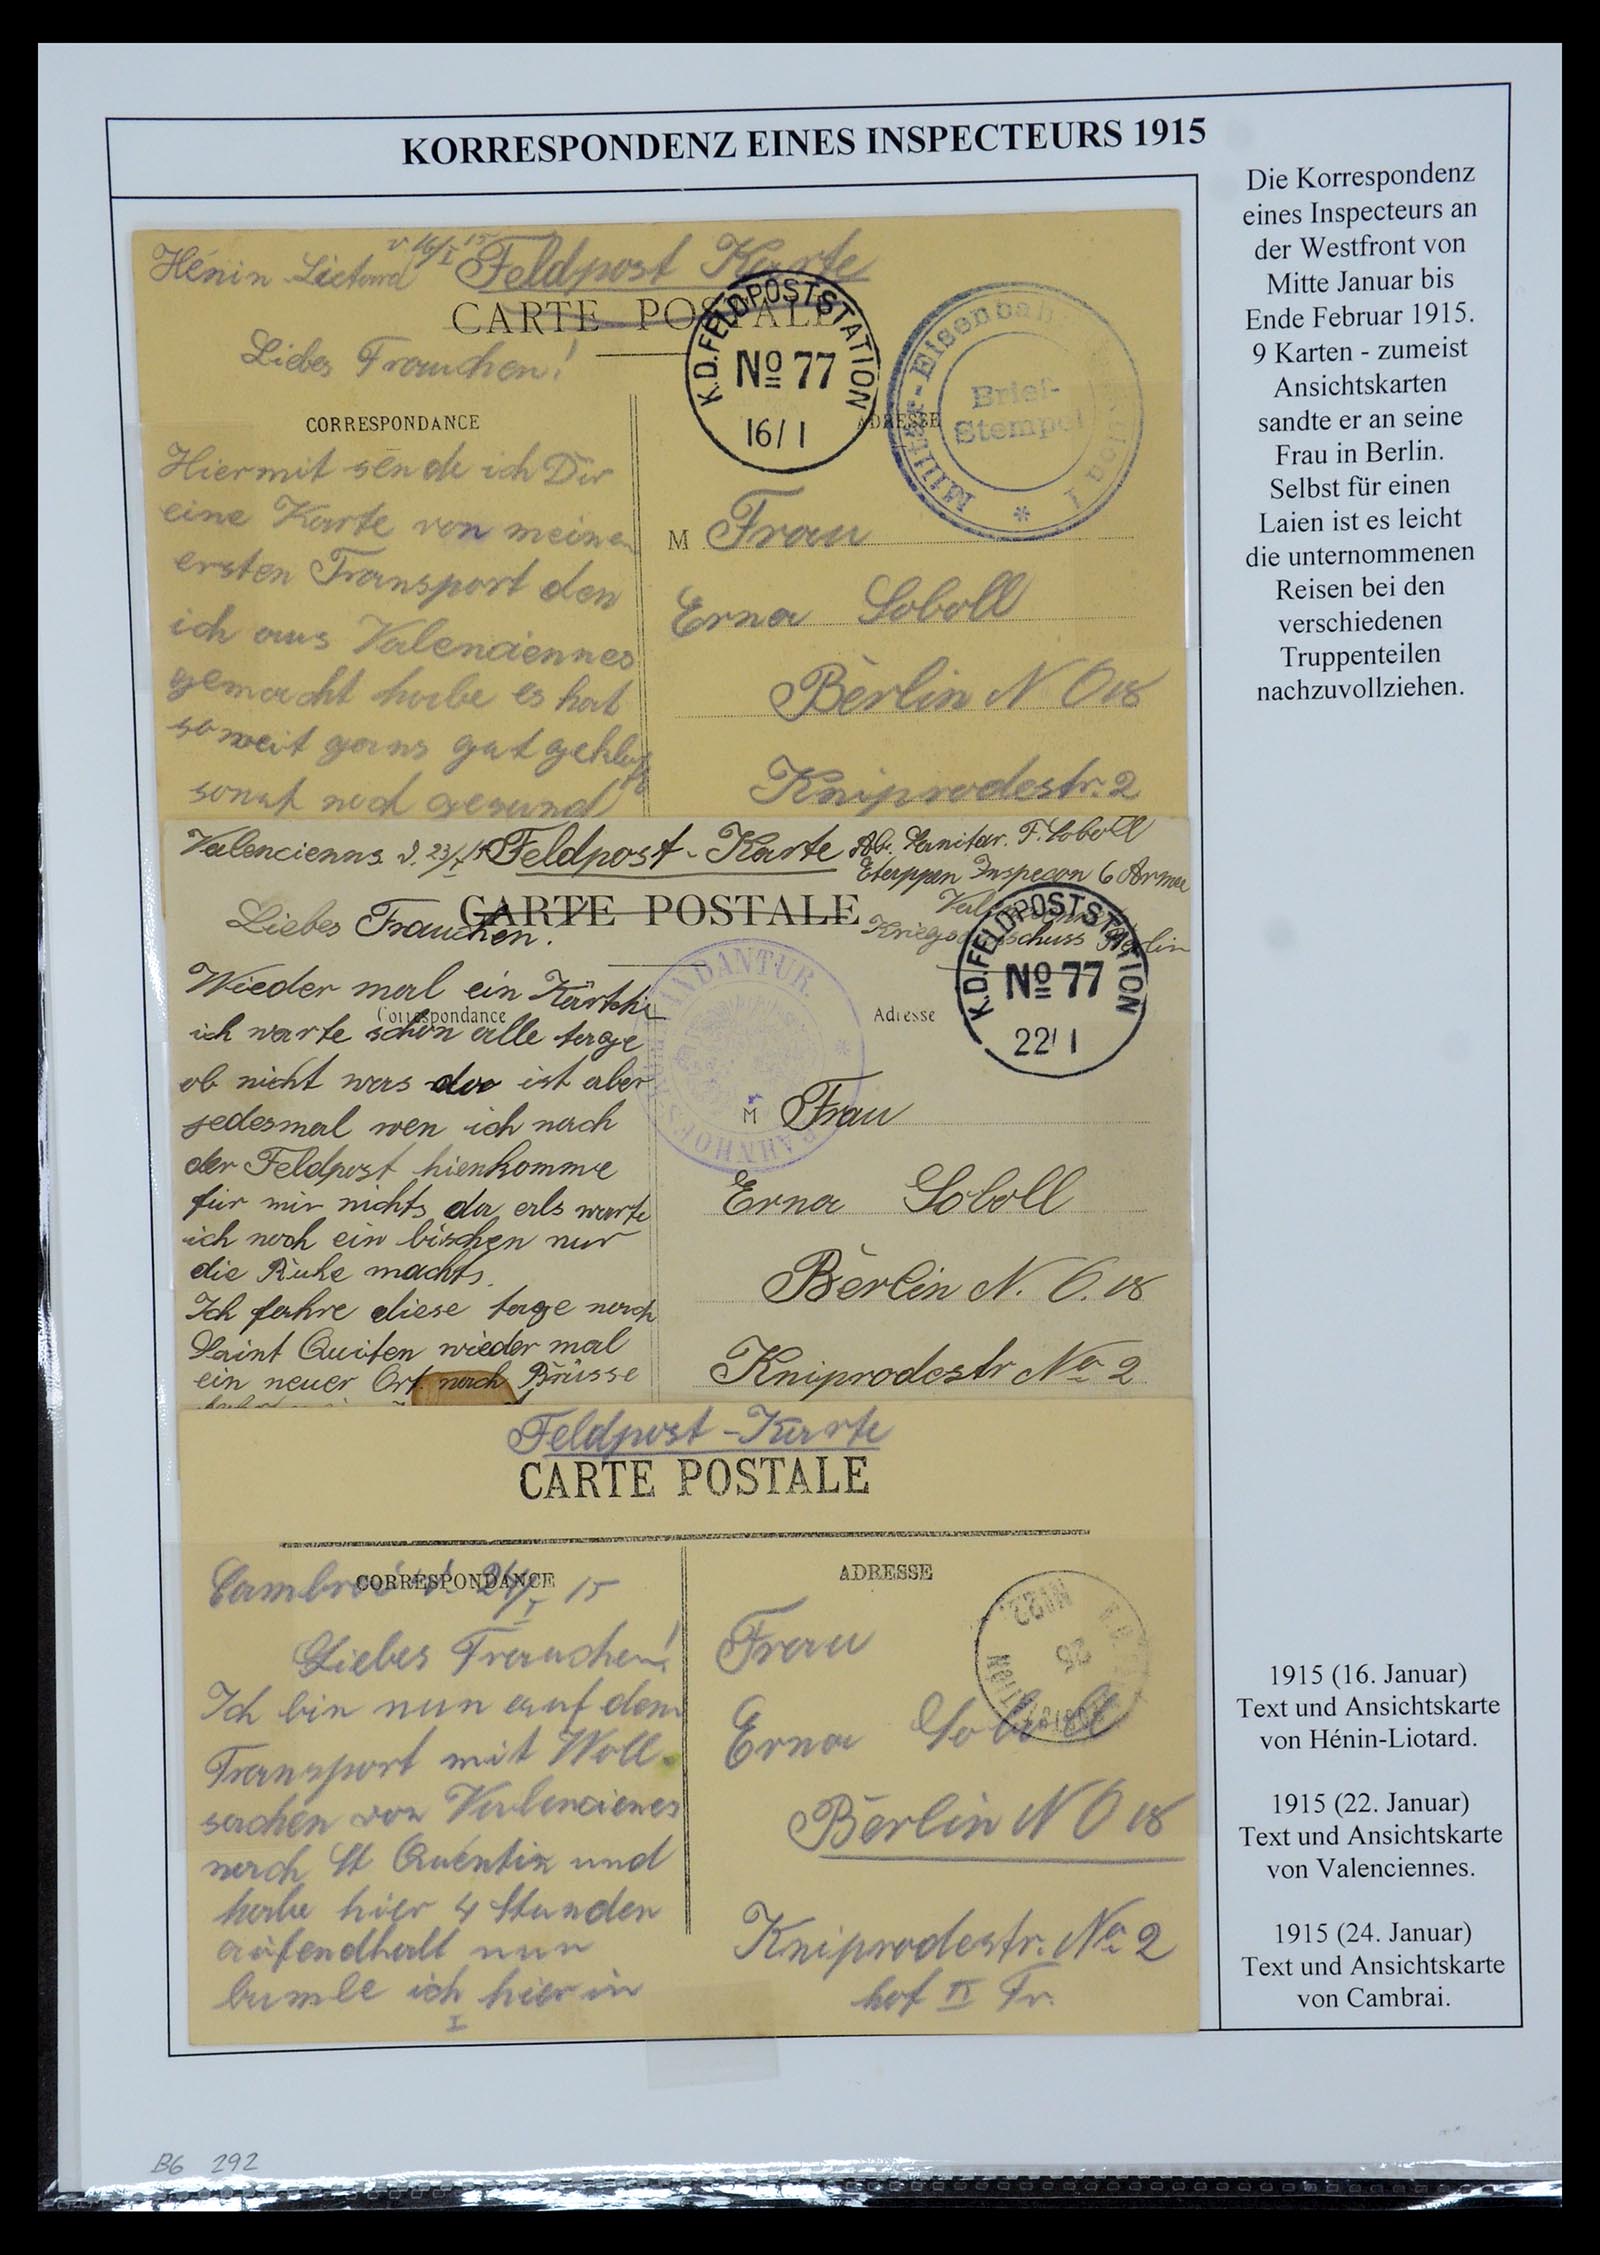 KORRESPONDENZ EINES INSPECTEURS 1915
Die Korrespondenz
eines Inspecteurs an
der Westfront von
Mitte Januar bis
Ende Februar 1915.
9 Karten - zumeist
Ansichtskarten
sandte er an seine
Frau in Berlin.
Selbst für einen
Laien ist es leicht
die unternommenen
Reisen bei den
verschiedenen
Truppenteilen
nachzuvollziehen.
Hénin Lietard v 16/I 15 Feldpost Karte
CARTE POSTALE
Liebes Frauchen!
CORRESPONDANCE
Hiermit sende ich Dir
eine Karte von meinen
ersten Transport den
ich aus Valenciennes
gemacht habe es hat
soweit gans gut
sonst noch gesund
K.D.FELDPOSTSTATION
No 77
16/1
Militär-Eisenbah
Brief-
Stempel
ADRESSE
M Frau
Erna Soboll
Berlin N O 18
Kniprodestr. 2
Valencienns d. 23/I 15 Feldpost-Karte Ab. Sanitar. F. Soboll
Etappen Inspecon 6 Armee
CARTE POSTALE
Liebes Frauchen!
Wieder mal ein
Correspondance
ich warte schon alle tage
ob nicht was da ist aber
jedesmal wen ich nach
der Feldpost hienkomme
für mir nichts da als warte
ich noch ein bischen nur
die Ruhe machts.
Ich fahre diese tage nach
Saint Quiten wieder mal
ein neuer Ort nach Brüsse
BAHNHOFS
NDANTUR.
Adresse
K.D.FELDPOSTSTATION
No 77
22/1
M Frau
Erna Soboll
Berlin N. O. 18
Kniprodestr No 2
Feldpost-Karte
CARTE POSTALE
CORRESPONDANCE
Cambrai d. 24/I 15
Liebes Frauchen!
Ich bin nun auf dem
Transport mit Woll-
sachen von Valencienes
nach St Quentin und
habe hier 4 Stunden
aufendhalt nun
bumle ich hier in
I
ADRESSE
Frau
Erna Soboll
Berlin N O 18
Kniprodestr. No 2
hof II Tr.
1915 (16. Januar)
Text und Ansichtskarte
von Hénin-Liotard.
1915 (22. Januar)
Text und Ansichtskarte
von Valenciennes.
1915 (24. Januar)
Text und Ansichtskarte
von Cambrai.
B6 292